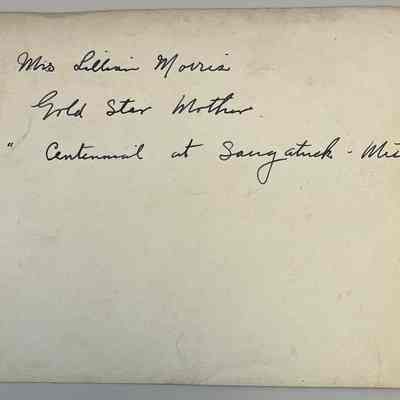 Mrs Lillian Morris
Gold Star Mother
" Centennial at Saugatuck - Mis